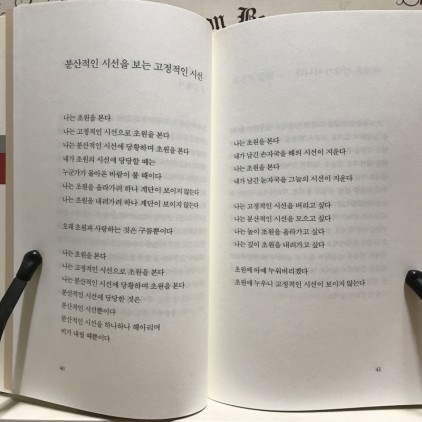 on B
분산적인 시선을 보는 고정적인 시선
나는 초원을 본다
나는 고정적인 시선으로 초원을 본다
나는 분산적인 시선에 당황하며 초원을 본다
내가 초원의 시선에 당당할 때는
누군가가 몰아온 바람이 불 때이다
나는 초원을 올라가려 하나 계단이 보이지 않는다
나는 초원을 내려가려 하나 계단이 보이지 않는다
오래 초원과 사랑하는 것은 구름뿐이다
나는 초원을 본다
나는 고정적인 시선으로 초원을 본다
나는 분산적인 시선에 당황하며 초원을 본다
분산적인 시선에 당당한 것은
분산적인 시선뿐이다
분산적인 시선을 하나하나 헤아리며
비가 내릴 때뿐이다
40
나는 초원을 본다
내가 남긴 손자국을 해의 시선이 지운다
나는 초원을 본다
내가 남긴 눈자국을 그늘의 시선이 지운다
나는 고정적인 시선을 버리고 싶다
나는 분산적인 시선을 모으고 싶다
나는 높이 초원을 올라가고 싶다
나는 깊이 초원을 내려가고 싶다
초원에 아예 누워버리겠다
초원에 누우니 고정적인 시선이 보이지 않는다
41